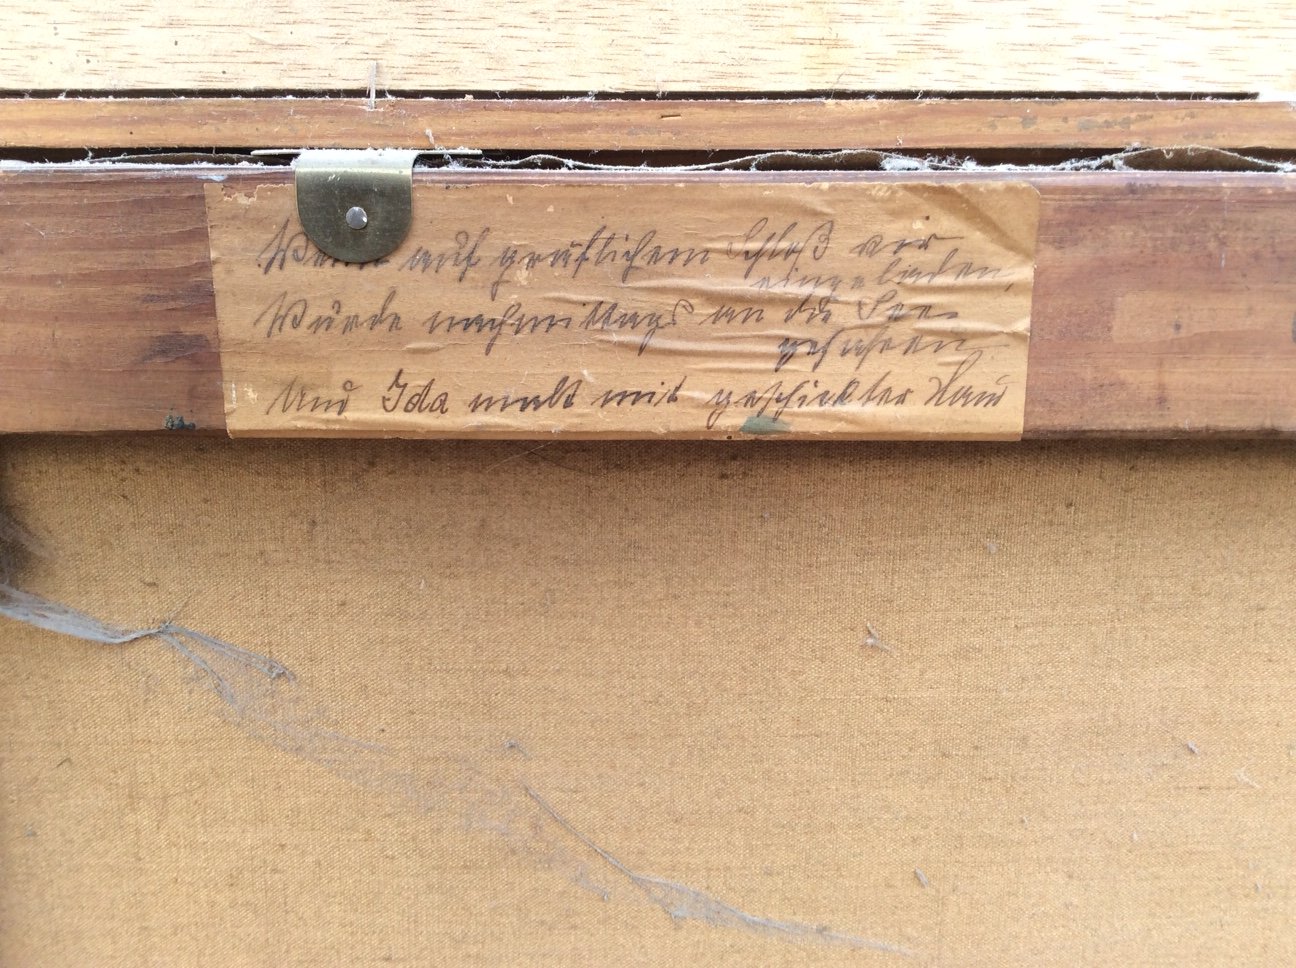 Wenn auf gräflichem Schloß wer
eingeladen,
Wurde nachmittags an die See
gefahren
Und Ida malt mit geschickter Hand